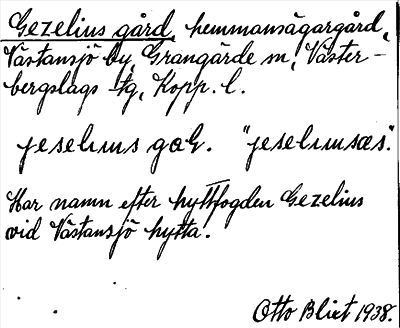 Gezelius gård, hemmansägargård,
Västansjö by, Grangärde sn, Väster-
bergslags tg, Kopp. l.
jeselius gaɖ. "jeseliusæs".
Har namn efter hyttfogden Gezelius
vid Västansjö hytta.
Otto Blixt 1938.